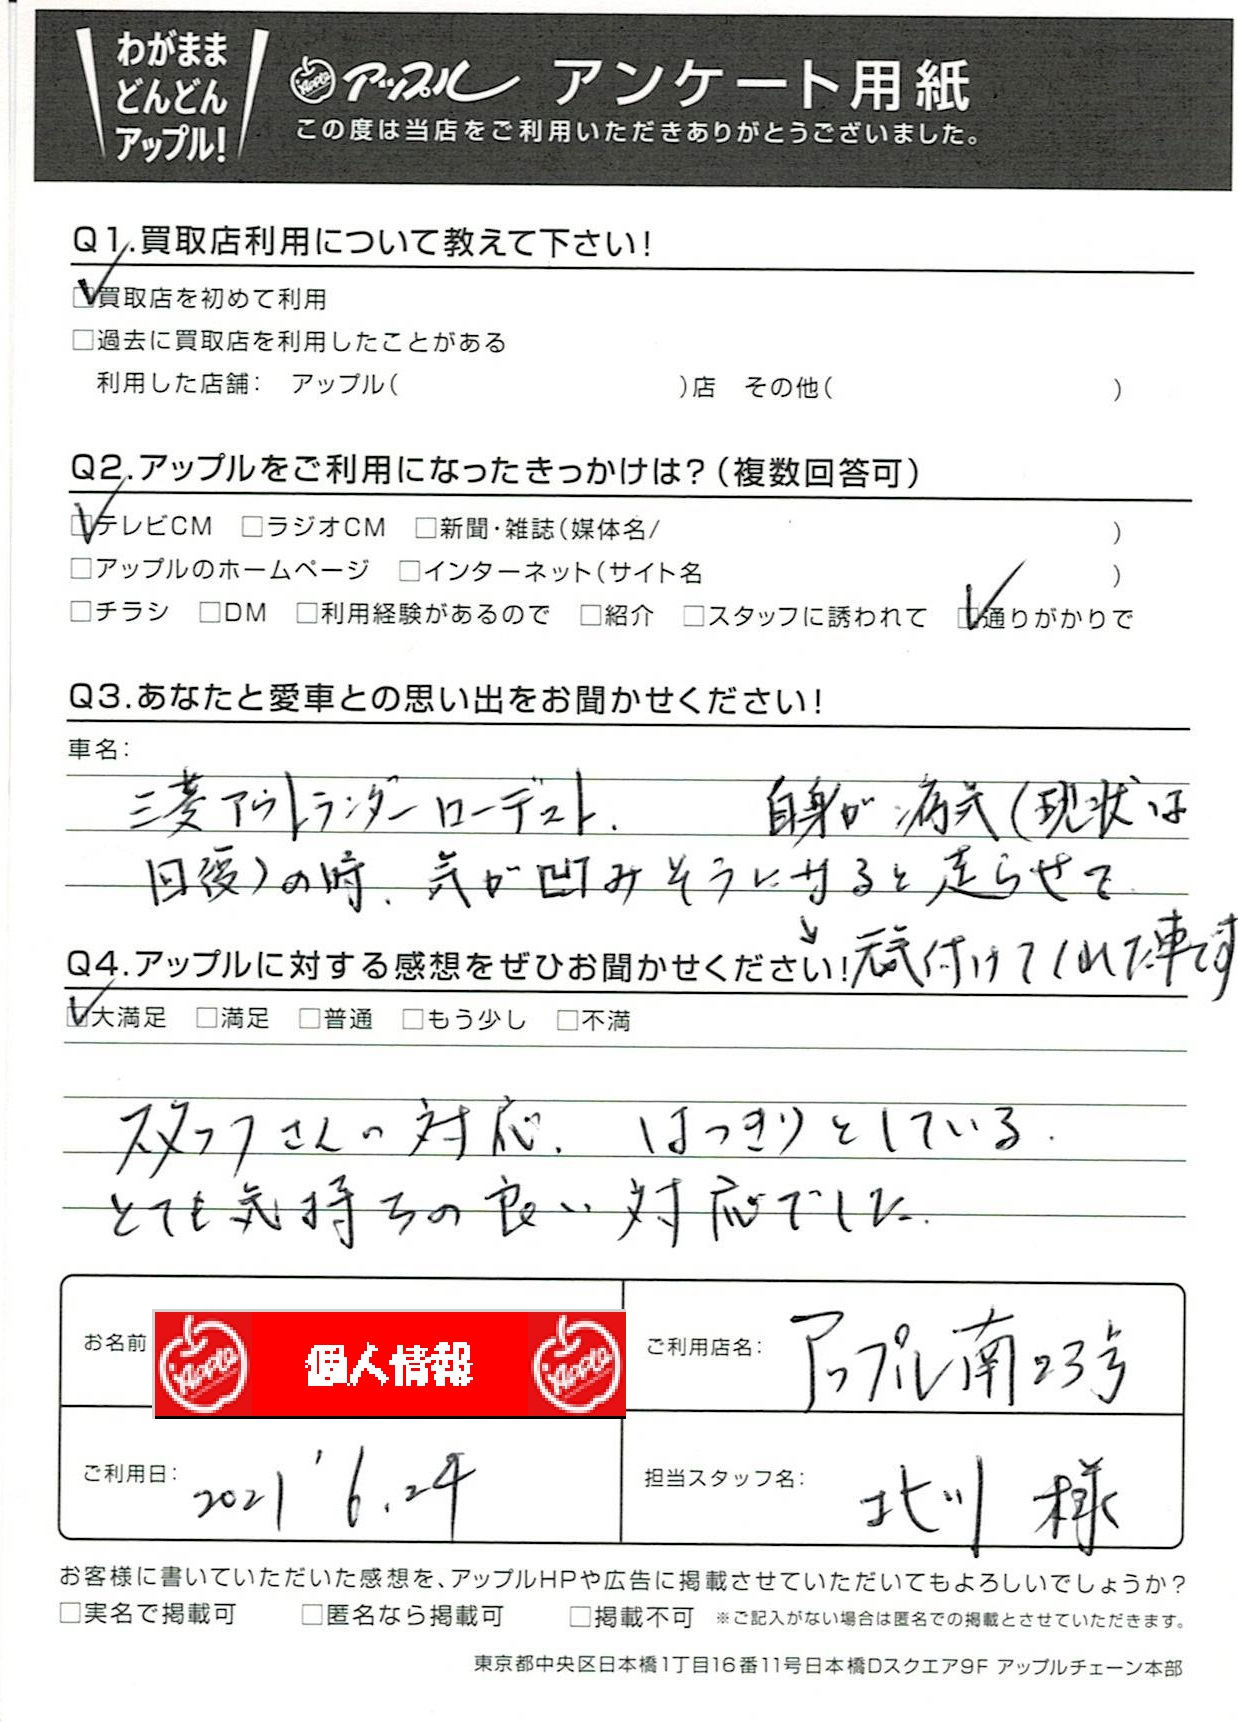 わがまま
どんどん
アップル!
Apple アップル アンケート用紙
この度は当店をご利用いただきありがとうございました。
Q1.買取店利用について教えて下さい!
☑買取店を初めて利用
□過去に買取店を利用したことがある
利用した店舗: アップル( )店 その他( )
Q2.アップルをご利用になったきっかけは?(複数回答可)
☑テレビCM □ラジオCM □新聞・雑誌(媒体名/ )
□アップルのホームページ □インターネット(サイト名 )
□チラシ □DM □利用経験があるので □紹介 □スタッフに誘われて ☑通りがかりで
Q3.あなたと愛車との思い出をお聞かせください!
車名:
三菱アウトランダーローデスト. 自身が病気(現状は
回復)の時、気が凹みそうになると走らせて
↘元気付けてくれた車です
Q4.アップルに対する感想をぜひお聞かせください!
☑大満足 □満足 □普通 □もう少し □不満
スタッフさんの対応、はっきりとしている.
とても気持ちの良い対応でした.
お名前 Apple 個人情報 Apple
ご利用店名: アップル南23号
ご利用日: 2021 '6.24
担当スタッフ名: 北川 様
お客様に書いていただいた感想を、アップルHPや広告に掲載させていただいてもよろしいでしょうか?
□実名で掲載可 □匿名なら掲載可 □掲載不可 ※ご記入がない場合は匿名での掲載とさせていただきます。
東京都中央区日本橋1丁目16番11号日本橋Dスクエア9F アップルチェーン本部